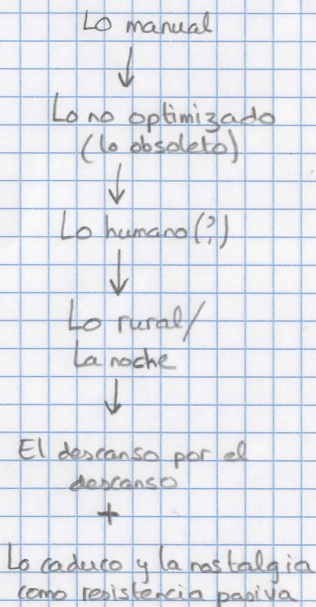 Lo manual
↓
Lo no optimizado
(lo obsoleto)
↓
Lo humano (?)
↓
Lo rural/
La noche
↓
El descanso por el
descanso
+
Lo caduco y la nostalgia
como resistencia pasiva